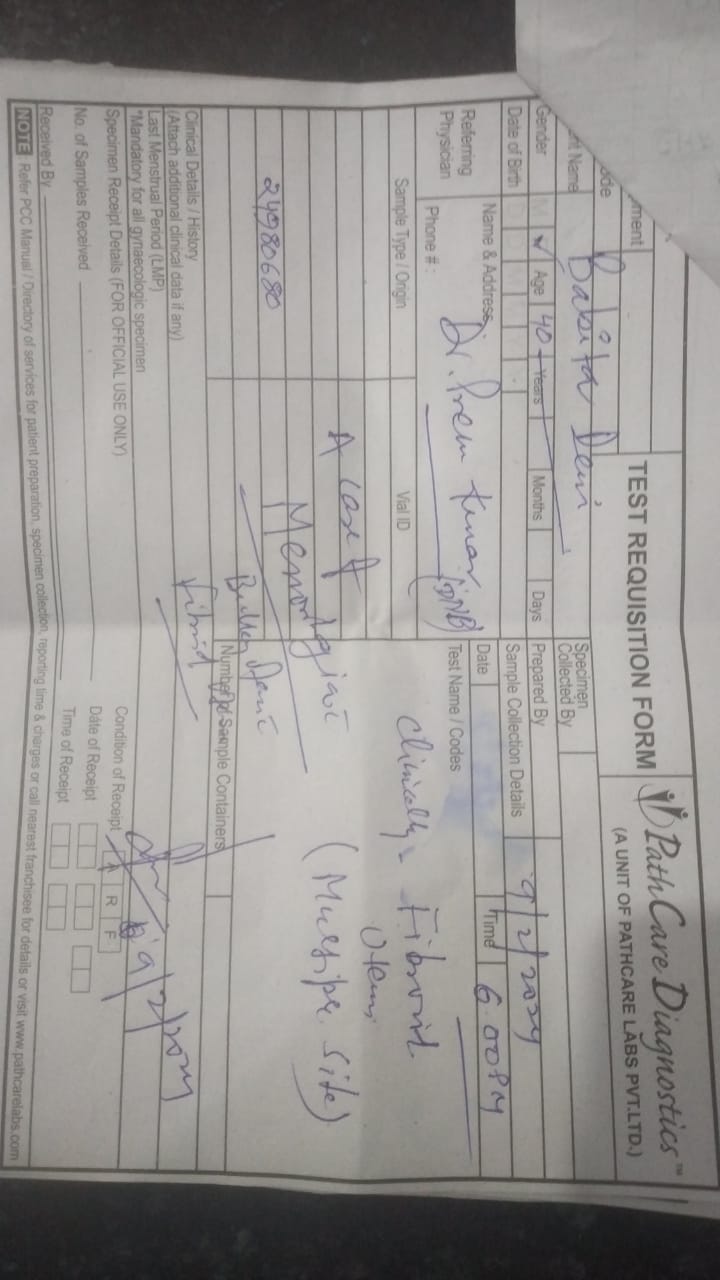 PathCare Diagnostics™
(A UNIT OF PATHCARE LABS PVT.LTD.)
TEST REQUISITION FORM
ment
ode
nt Name Babita Devi
Specimen Collected By
Gender M Age 40 Years Months Days
Prepared By
Date of Birth
Sample Collection Details 9/2/2024
Date Time 6.00PM
Referring Physician
Name & Address Dr. Prem Kumar (DNB)
Phone # :
Test Name / Codes
Sample Type / Origin Vial ID
Clinically Fibroid
A case of
Menorrhagia
(Multiple Site)
24980680
Number of Sample Containers
Fibroid
Clinical Details / History
(Attach additional clinical data if any)
Last Menstrual Period (LMP)
*Mandatory for all gynaecologic specimen
9/2/2024
Specimen Receipt Details (FOR OFFICIAL USE ONLY)
Condition of Receipt A R F
No. of Samples Received
Date of Receipt
Received By
Time of Receipt
NOTE Refer PCC Manual / Directory of services for patient preparation, specimen collection, reporting time & charges or call nearest franchisee for details or visit www.pathcarelabs.com